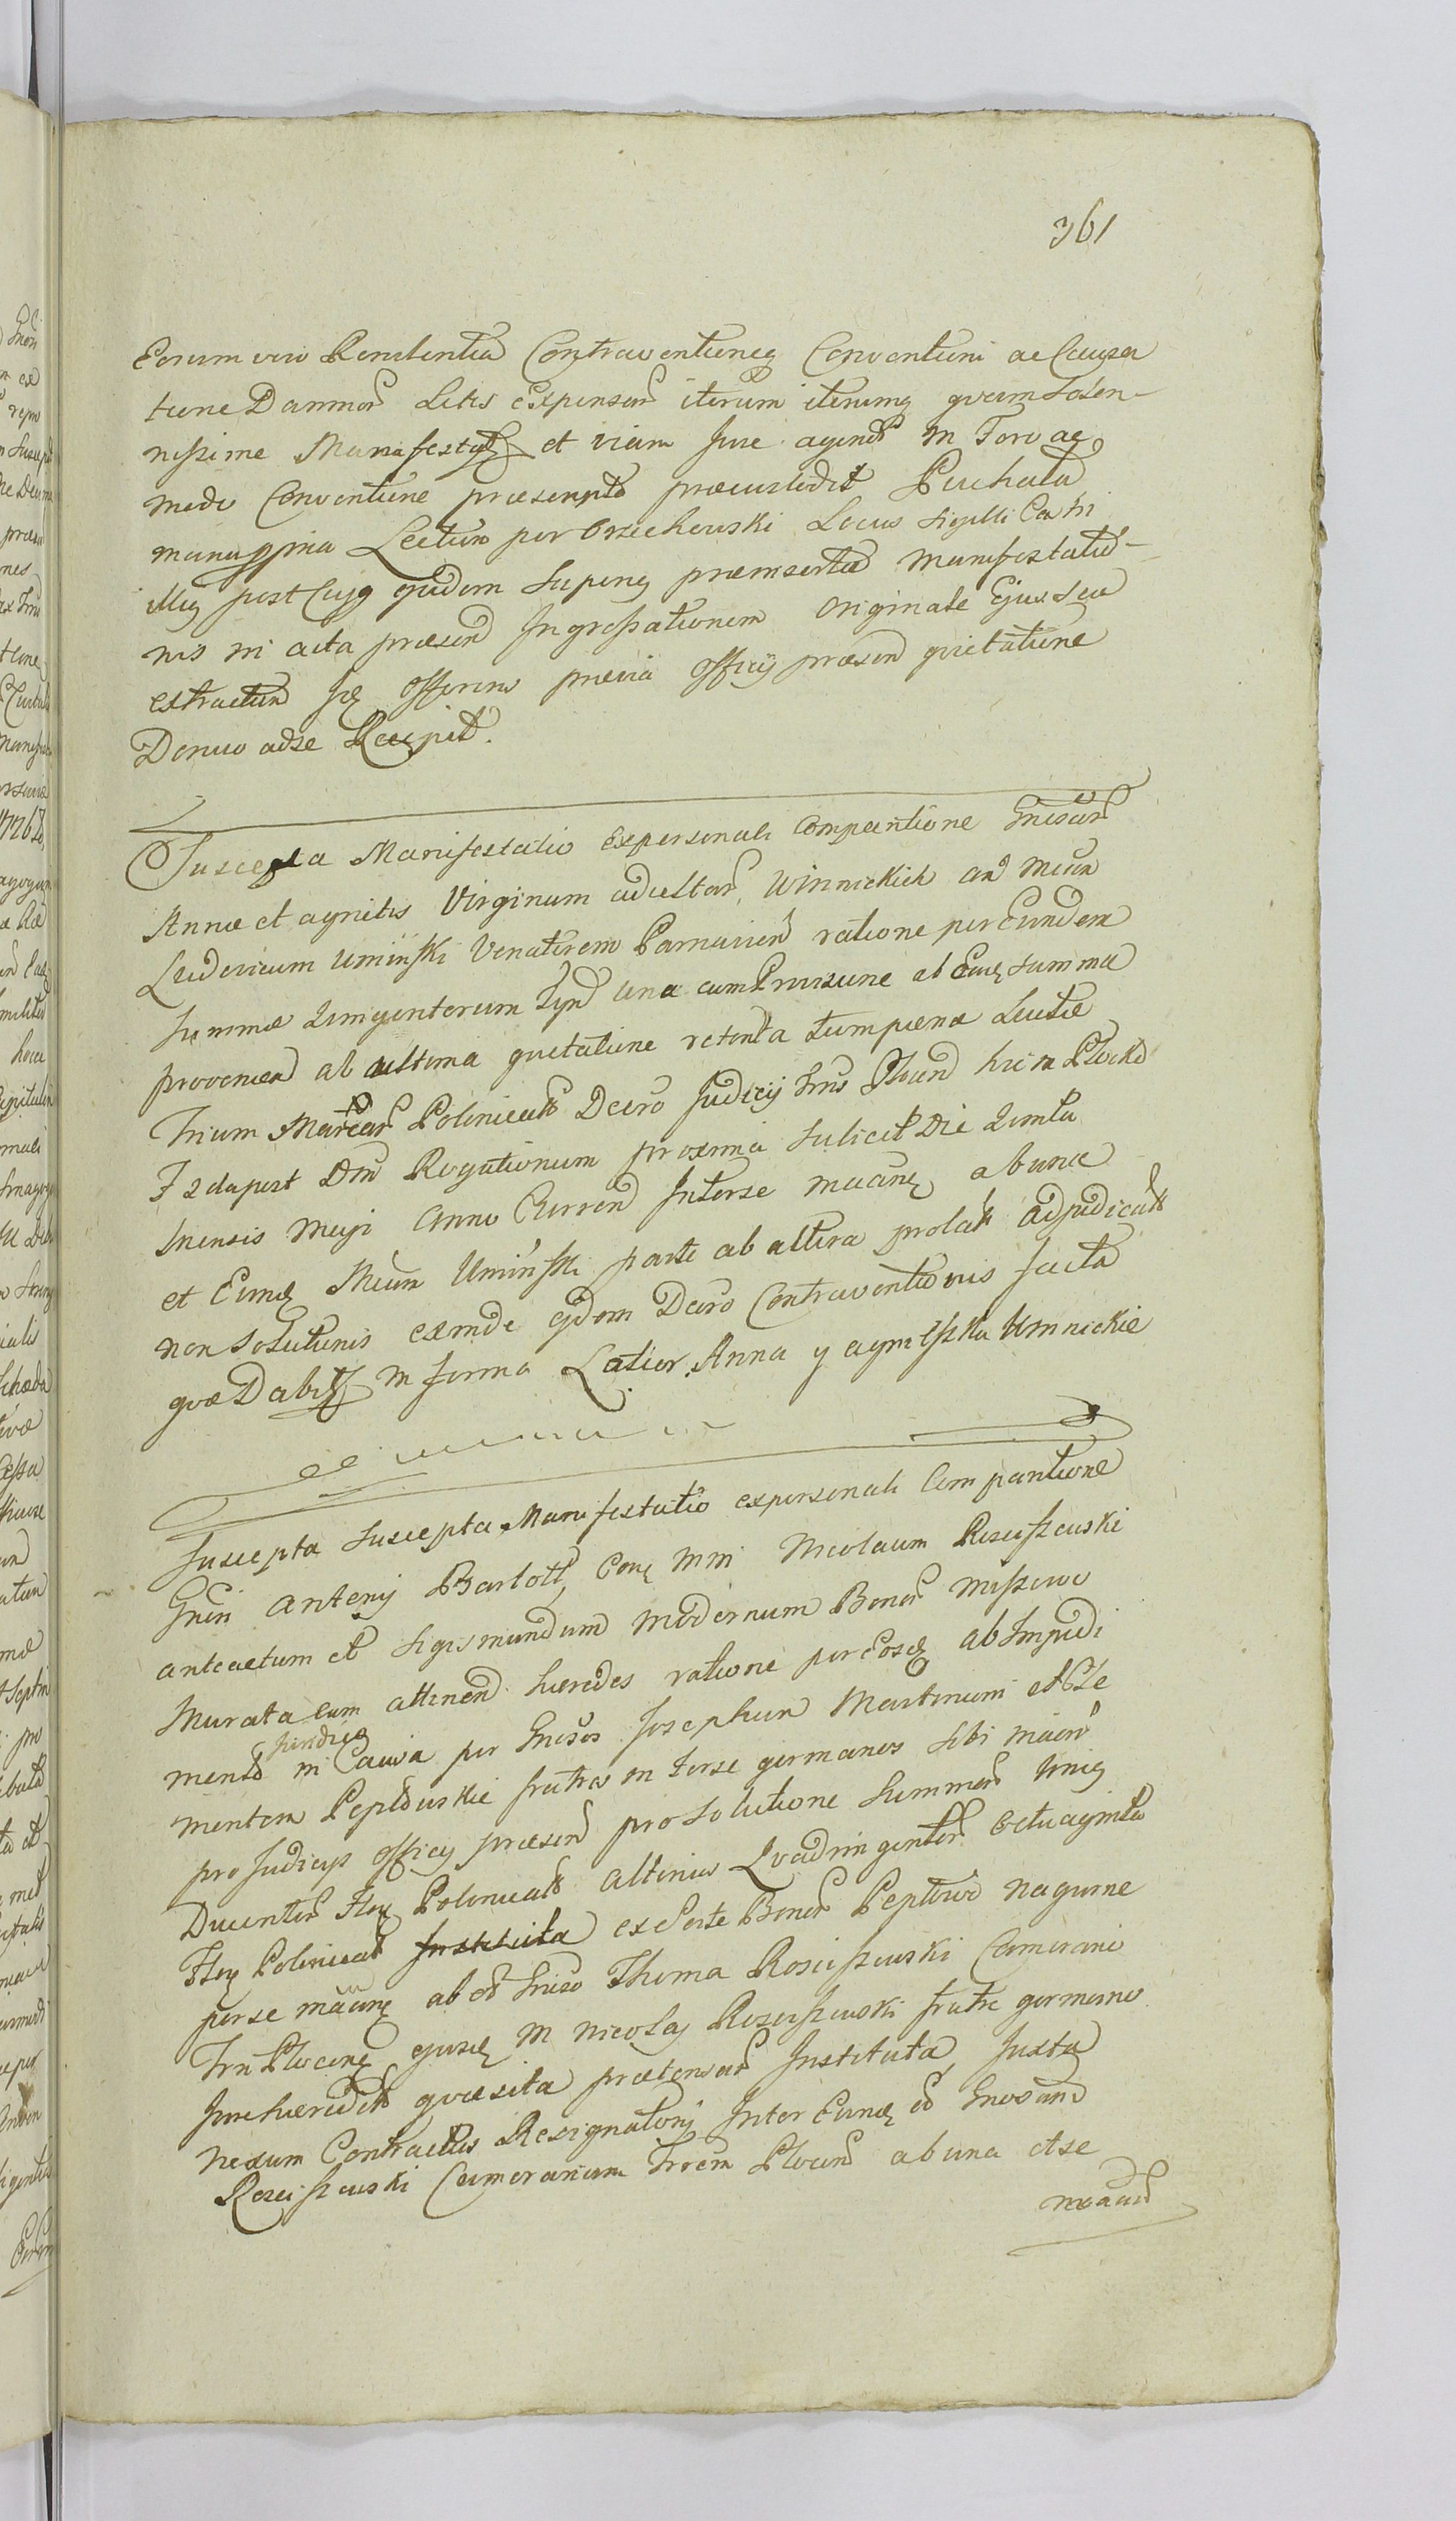 361
Eorum vero Renitentia Contraventioneq Conventioni ac Causa
tione Damnor Litis Expensar iterum iterumq quam Solen-
nissime Manifestatq et viam Jure agend in Foro ac
modo Conventione praescripto praecustodit Puchała
manu ppria Lectum per Orzechowski Locus Sigilli Castri
illiq post Cujq quidem Superq praeinsertae Manifestatio-
nis in acta praesen Ingrossationem Originale Ejus seu
extractum Jd Offerens praevia Officij praesen quietatione
Denuo ad se Recepit.
Suscepta Manifestatio Ex personali Comparitione Gnesar
Annae et agnetis Virginum adultar Winnickich
Ludovicum Uminski Venatorem Parnavien ratione per Eundem
Summae Quingentorum una cum Provisione ab Eadq Summa
provenien ab ultima quietatione retenta tum paenae Luitae
Trium Marcar Polonicalt Decro Judicij Trris Plocen hic in Plocko
Fr 2da post Dnm Rogationum proxima Scilicet Die Quinta
Mensis Maji Anno Curren Inter se ab una
et Eund Uminski parte ab altera prolat adjudicat
non Solutionis exinde eidem Decro Contraventionis facta
quae Dabitq in forma Latior. Anna y agnieszka Winnickie
Suscepta Suscepta Manifestatio ex personali Comparitione
Gnesi Antonij Bartołt Nicolaum Rosciszewski
anteactum et Sigismundum modernum Bonor Miszewo
Murata cum attinen haeredes ratione per Eosd ab Impedi
juridico
mento in Causa per Gnesos Josephum Martinum et Cle
mentem Peplowskie fratres inter se germanos Sibi
pro Judicijs Officij praesen pro Solutione Summar Uniq
Ducentor Flor Polonicalt alterius Quadringentor Octuaginta
Flor Polonicalt Instituta ex Sorte Bonor Peplowo nagurne
per se ab Gneso Thoma Rosciszewski Camerario
Trri Plocen ejusd Nicolaj Rosciszewski fratre germano
Jure haeredit quaesita praetensar Instituta, Juxta
nexum Contractus Resignatorij Inter Eund
Rosciszewski Camerarium Trrem Plocen ab una et se